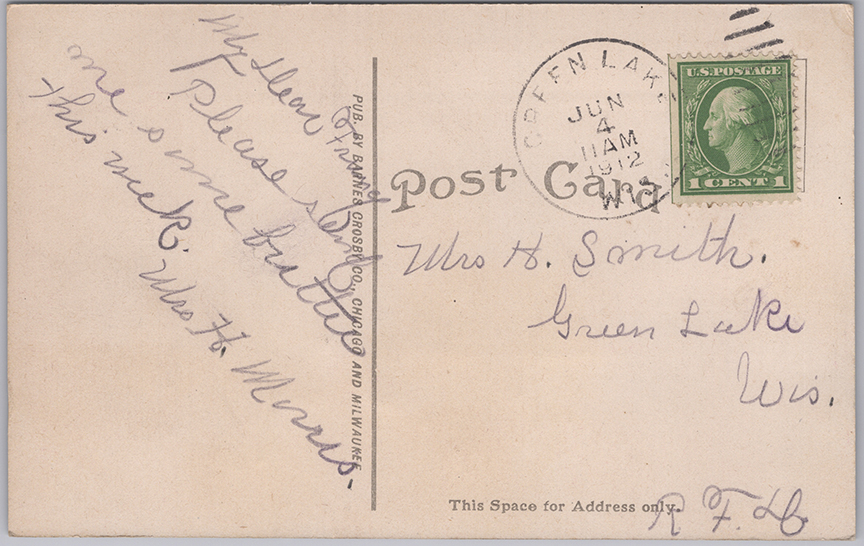 My Dear
Please send
me some butter
this week.
Mrs H. Morris.
PUB. BY BARNES CROSBY CO., CHICAGO AND MILWAUKEE
Post Card
GREEN LAKE
JUN
4
11 AM
1912
WIS.
U.S. POSTAGE
1 CENT 1
Mrs H. Smith.
Green Lake
Wis.
This Space for Address only.
R. F. D.